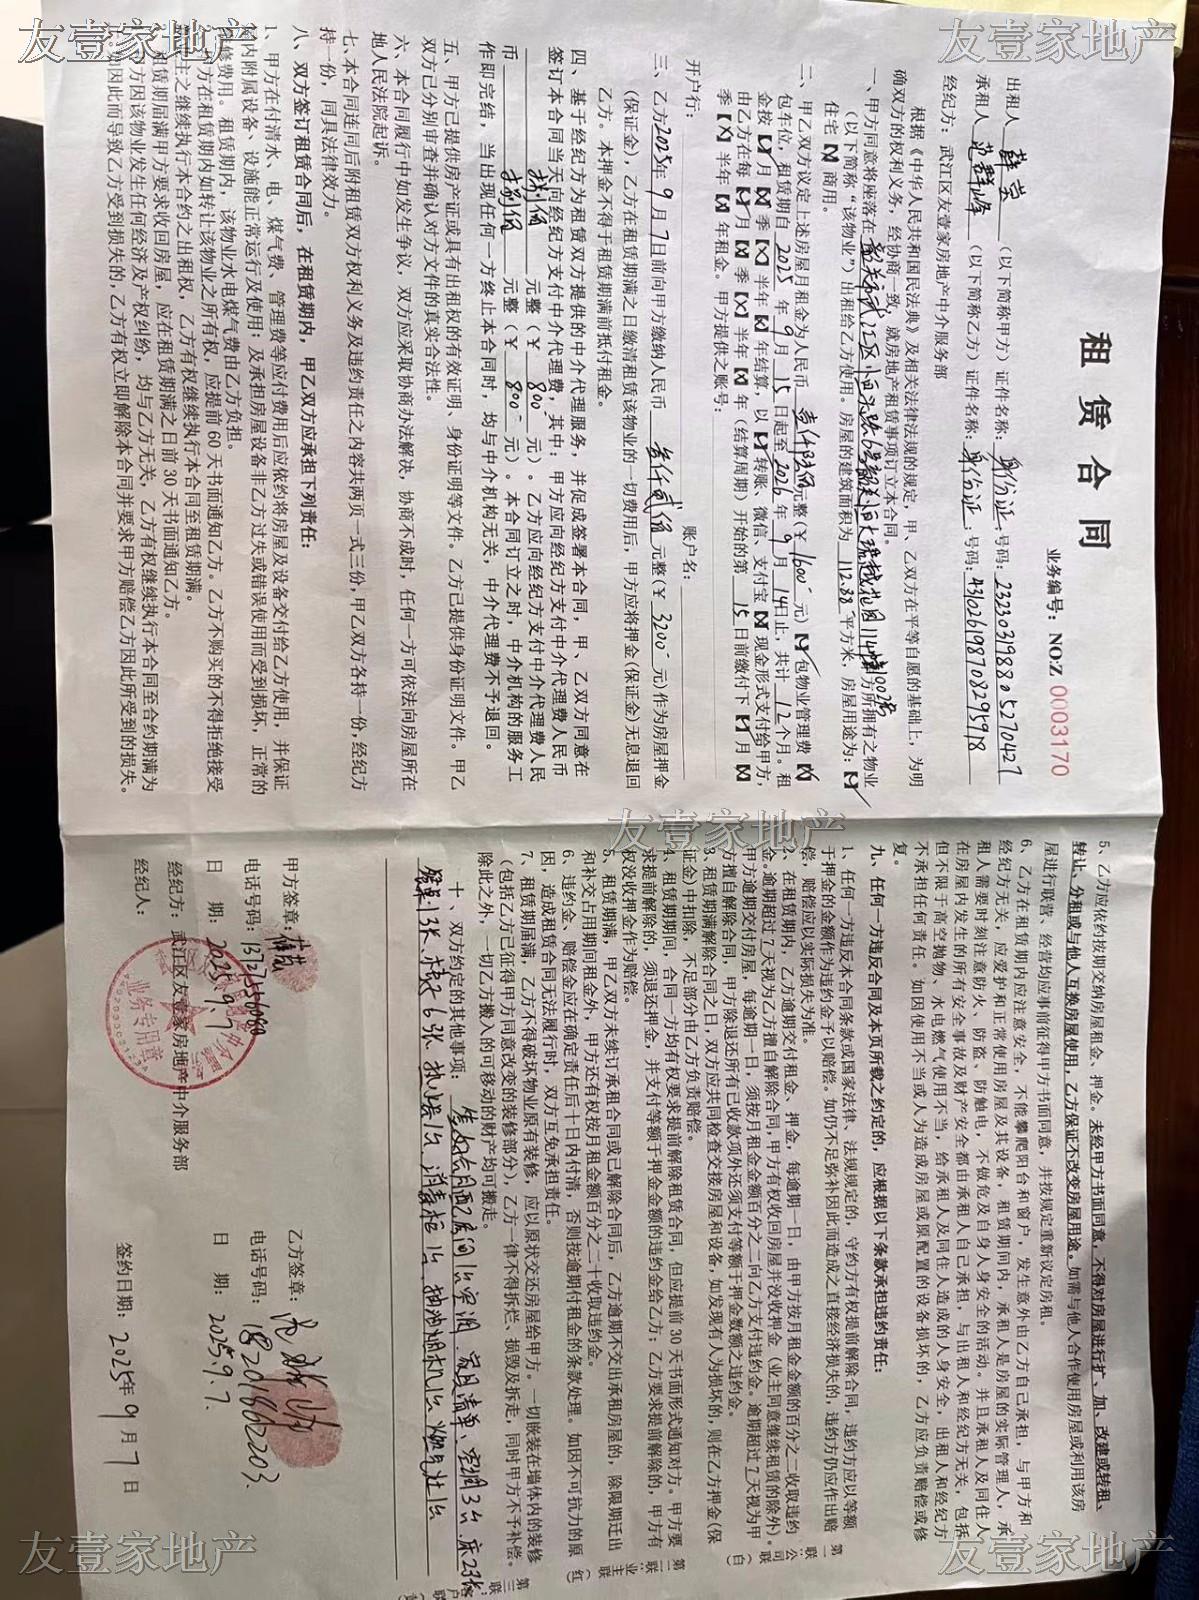 友壹家地产
友壹家地产
友壹家地产
友壹家地产
友壹家地产
租赁合同
业务编号：NO:Z 0003170
出租人 （以下简称甲方）证件名称：身份证 号码：232303198805270427
承租人 范群峰 （以下简称乙方）证件名称：身份证 号码：431026198708295918
经纪方：武江区友壹家房地产中介服务部
根据《中华人民共和国民法典》及相关法律法规的规定，甲、乙双方在平等自愿的基础上，为明
确双方的权利义务，经协商一致，就房地产租赁事项订立本合同。
一、甲方同意将座落在 韶关市武江区 方所拥有之物业
（以下简称“该物业”）出租给乙方使用。房屋的建筑面积为 112.88 平方米，房屋用途为：【✓】
住宅【×】商用。
二、甲乙双方议定上述房屋月租金为人民币 壹仟陆佰 元整（￥1600- 元）【✓】包物业管理费【×】
包车位，租赁期自 2025 年 9 月 15 日起至 2026 年 9 月 14 日止，共计 12 个月。租
金按【✓】月【×】季【×】半年【×】年结算，以【✓】转账、微信、支付宝【×】现金形式支付给甲方，
由乙方在每【✓】月【×】季【×】半年【×】年（结算周期）开始的第 15 日前缴付下【✓】月【×】
季【×】半年【×】年租金。甲方提供之账号：
开户行： 账户名：
三、乙方 2025 年 9 月 7 日前向甲方缴纳人民币 叁仟贰佰 元整（￥3200- 元）作为房屋押金
（保证金），乙方在租赁期满之日缴清租赁该物业的一切费用后，甲方应将押金（保证金）无息退回
乙方。本押金不得于租赁期满前抵付租金。
四、基于经纪方为租赁双方提供的中介代理服务，并促成签署本合同，甲、乙双方同意在
签订本合同当天向经纪方支付中介代理费，其中：甲方应向经纪方支付中介代理费人民币
捌佰 元整（￥800- 元）。乙方应向经纪方支付中介代理费人民
币 捌佰 元整（￥800- 元）。本合同订立之时，中介机构的服务工
作即完结，当出现任何一方终止本合同时，均与中介机构无关，中介代理费不予退回。
五、甲方已提供房产证或具有出租权的有效证明、身份证明等文件。乙方已提供身份证明文件。甲乙
双方已分别审查并确认对方文件的真实合法性。
六、本合同履行中如发生争议，双方应采取协商办法解决，协商不成时，任何一方可依法向房屋所在
地人民法院起诉。
七、本合同连同后附租赁双方权利义务及违约责任之内容共两页一式三份，甲乙双方各持一份，经纪方
持一份，同具法律效力。
八、双方签订租赁合同后，在租赁期内，甲乙双方应承担下列责任：
1、甲方在付清水、电、煤气费、管理费等应付费用后应依约将房屋及设备交付给乙方使用，并保证
房内附属设备、设施能正常运行及使用；及承担房屋设备非乙方过失或错误使用而受到损坏，正常的
维修费用。租赁期内，该物业水电煤气费由乙方负担。
甲方在租赁期内如转让该物业之所有权，应提前60天书面通知乙方。乙方不购买的不得拒绝接受
业主之继续执行本合约之出租权，乙方有权继续执行本合同至租赁期满。
租赁期届满甲方要求收回房屋，应在租赁期满之日前30天书面通知乙方。
甲方因该物业发生任何经济及产权纠纷，均与乙方无关，乙方有权继续执行本合同至合约期满为
止。如因此而导致乙方受到损失的，乙方有权立即解除本合同并要求甲方赔偿乙方因此所受到的损失。
5、乙方应依约按期交纳房屋租金、押金。未经甲方书面同意，不得对房屋进行扩、加、改建或转租、
转让、分租或与他人互换房屋使用，乙方保证不改变房屋用途。如需与他人合作使用房屋或利用该房
屋进行联营、经营均应事前征得甲方书面同意，并按规定重新议定房租。
6、乙方在租赁期内应注意安全，不能攀爬阳台和窗户，发生意外由乙方自己承担，与甲方和
经纪方无关，应爱护和正常使用房屋及其设备，租赁期间内，承租人是房屋的实际管理人，承
租人需要时刻注意防火、防盗、防触电，不做危及自身人身安全的活动。并且承租人及同住人
在房屋内发生的所有安全事故及财产安全都由承租人自己承担，与出租人和经纪方无关，包括
但不限于高空抛物、水电燃气使用不当，给承租人及同住人造成的人身安全，出租人和经纪方
不承担任何责任。如因使用不当或人为造成房屋或原配置的设备损坏的，乙方应负责赔偿或修
复。
九、任何一方违反合同及本页所载之约定的，应根据以下条款承担违约责任：
1、任何一方违反本合同条款或国家法律、法规规定的，守约方有权提前解除合同，违约方应以等额
于押金的金额作为违约金予以赔偿。如仍不足弥补因此而造成之直接经济损失的，违约方仍应作出赔
偿，赔偿应以实际损失为准。
2、在租赁期内，乙方逾期交付租金、押金，每逾期一日，由甲方按月租金金额的百分之二收取违约
金。逾期超过7天视为乙方擅自解除合同，甲方有权收回房屋并没收押金（业主同意继续租赁的除外）。
甲方逾期交付房屋，每逾期一日，须按月租金金额百分之二向乙方支付违约金。逾期超过7天视为甲
方擅自解除合同，甲方除退还所有已收款项外还须支付等额于押金数额之违约金。
3、租赁期满解除合同之日，双方应共同检查交接房屋和设备，如发现有人为损坏的，则在乙方押金（保
证金）中扣除，不足部分由乙方负责赔偿。
4、租赁期期间，合同一方均有权要求提前解除租赁合同，但应提前30天书面形式通知对方。甲方要
求提前解除的，须退还押金，并支付等额于押金金额的违约金给乙方；乙方要求提前解除的，甲方有
权没收押金作为赔偿。
5、租赁期满，甲乙双方未续订承租合同或已解除合同后，乙方逾期不交出承租房屋的，除限期迁出
和补交占用期间租金外，甲方还有权按月租金额百分之二十收取违约金。
6、违约金、赔偿金应在确定责任后十日内付清，否则按逾期付租金的条款处理。如因不可抗力的原
因，造成租赁合同无法履行时，双方互免承担责任。
7、租赁期届满，乙方不得破坏物业原有装修，应以原状交还房屋给甲方。一切嵌装在墙体内的装修
（包括乙方已征得甲方同意改变的装修部分），乙方一律不得拆烂、损毁及拆走，同时甲方不予补偿。
除此之外，一切乙方搬入的可移动的财产均可搬走。
十、双方约定的其他事项：
第一联：公司（白）
第二联：业主（红）
第三联：客户
甲方签章：
电话号码：13727556080
日 期：2025.9.7
经纪方：武江区友壹家房地产中介服务部
经纪人：
业务专用章
乙方签章：
电话号码：18201860203
日 期：2025.9.7.
签约日期：2025年9月7日